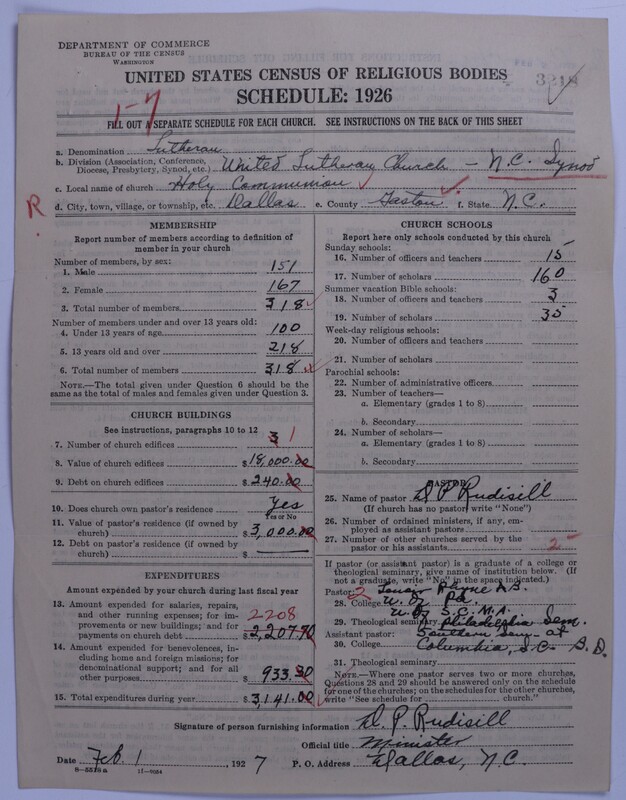 DEPARTMENT OF COMMERCE
BUREAU OF THE CENSUS
WASHINGTON
UNITED STATES CENSUS OF RELIGIOUS BODIES
SCHEDULE: 1926
1-7
FILL OUT A SEPARATE SCHEDULE FOR EACH CHURCH. SEE INSTRUCTIONS ON THE BACK OF THIS SHEET
a. Denomination Lutheran
b. Division (Association, Conference, Diocese, Presbytery, Synod, etc.) United Lutheran Church - N.C. Synod
c. Local name of church Holy Communion
R d. City, town, village, or township, etc. Dallas e. County Gaston f. State N.C.
MEMBERSHIP
Report number of members according to definition of
member in your church
Number of members, by sex:
1. Male 151
2. Female 167
3. Total number of members 318
Number of members under and over 13 years old:
4. Under 13 years of age 100
5. 13 years old and over 218
6. Total number of members 318
NOTE.—The total given under Question 6 should be the
same as the total of males and females given under Question 3.
CHURCH BUILDINGS
See instructions, paragraphs 10 to 12
7. Number of church edifices 3 1
8. Value of church edifices $18,000.00
9. Debt on church edifices $240.00
10. Does church own pastor's residence Yes
Yes or No
11. Value of pastor's residence (if owned by
church) $3,000.00
12. Debt on pastor's residence (if owned by
church) $
EXPENDITURES
Amount expended by your church during last fiscal year
13. Amount expended for salaries, repairs,
and other running expenses; for im-
provements or new buildings; and for
payments on church debt $2,207.70 2208
14. Amount expended for benevolences, in-
cluding home and foreign missions; for
denominational support; and for all
other purposes $933.30
15. Total expenditures during year $3,141.00
CHURCH SCHOOLS
Report here only schools conducted by this church
Sunday schools:
16. Number of officers and teachers 15
17. Number of scholars 160
Summer vacation Bible schools:
18. Number of officers and teachers 3
19. Number of scholars 35
Week-day religious schools:
20. Number of officers and teachers
21. Number of scholars
Parochial schools:
22. Number of administrative officers
23. Number of teachers—
a. Elementary (grades 1 to 8)
b. Secondary
24. Number of scholars—
a. Elementary (grades 1 to 8)
b. Secondary
PASTOR
25. Name of pastor D P Rudisill
(If church has no pastor, write "None")
26. Number of ordained ministers, if any, em-
ployed as assistant pastors
27. Number of other churches served by the
pastor or his assistants 2
If pastor (or assistant pastor) is a graduate of a college or
theological seminary, give name of institution below. (If
not a graduate, write "No" in the space indicated.)
Pastor: 2 Lenoir Rhyne A.B.
28. College U. of Pa.
U. of S.C. M.A.
29. Theological seminary Philadelphia Sem.
Assistant pastor: Southern Sem. at
30. College Columbia, S.C. B.D.
31. Theological seminary
NOTE.—Where one pastor serves two or more churches,
Questions 28 and 29 should be answered only on the schedule
for one of the churches; on the schedules for the other churches,
write "See schedule for church."
Signature of person furnishing information D. P. Rudisill
Official title Minister
Date Feb. 1, 1927 P. O. Address Dallas, N.C.
8-5578a 11-9064